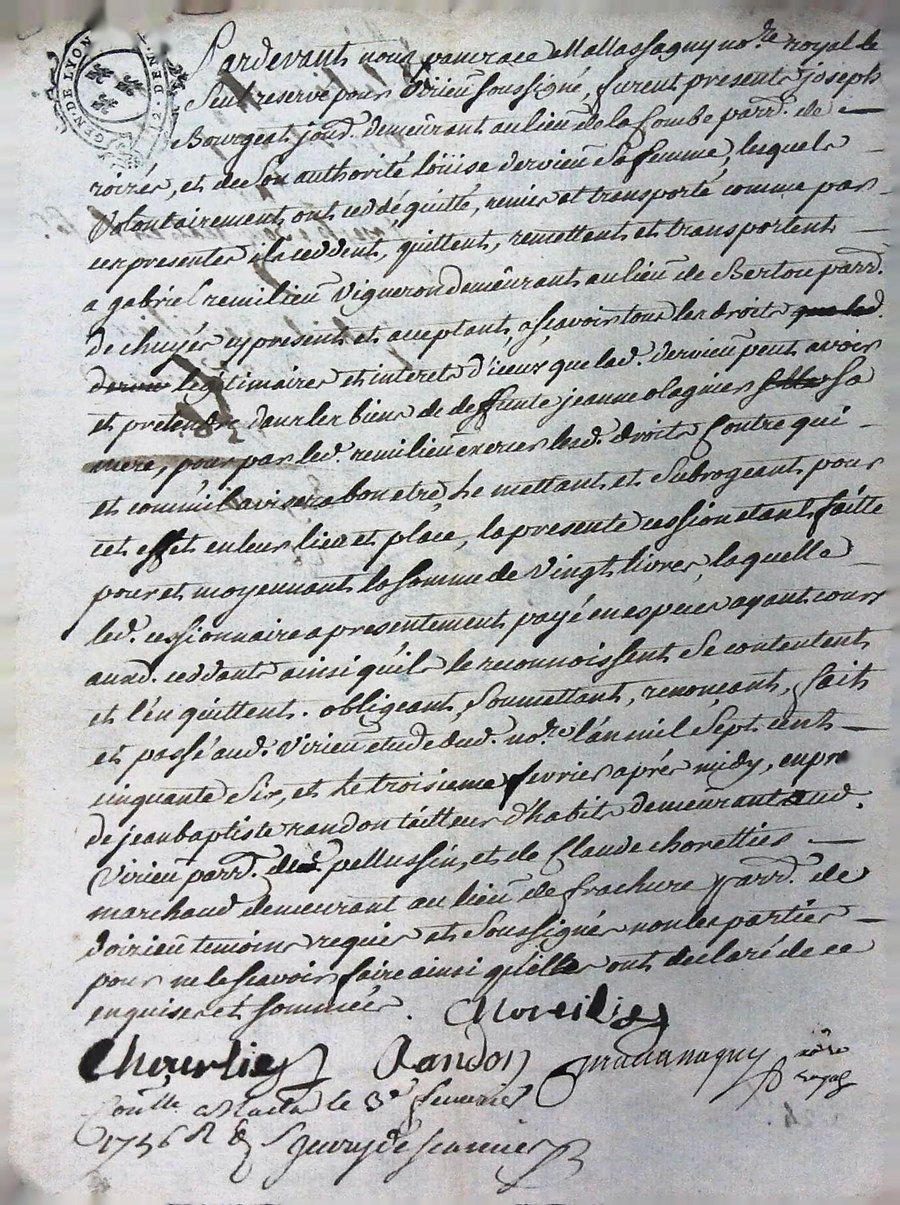 GEN. DE LYON DEN.
Pardevant nous pancrace Mallassagny no.re royal de
Seul reservé pour Virieu soussigné, furent presents joseph
Bourgeat jour.d demeurant au lieu de la Combe parr.d de
roirés, et de Son authorité Loüise dervieu Sa femme, lesquels
Volontairement ont ceddé, quitté, remis et transporté comme par
ces presentes ils ceddent, quittent, remettent et transportent
a gabriel remilieu Vigneron demeurant au lieu de Bertou parr.d
de chuyés cy present et acceptant, a sçavoir tous les droits que lad.
dervieu legitimaires et interets d'iceux que lad. dervieu peut avoir
et pretendre dans les biens de deffunte jeanne olagnier sa
mere, pour par led. remilieu exercer lesd. droits Contre qui
et comm'il avisera bon etre, Le mettant et Subrogeant pour
cet effet en leur lieu et place, la presente cession etant faitte
pour et moyennant la somme de Vingt livres, laquelle
led. cessionnaire a presentement payé en especes ayant cours
auxd. ceddants ainsi qu'ils le reconnoissent Se contentent
et l'en quittent. obligeant, Soumettant, renonçant, fait
et passé aud. Virieu etude dud. no.re L'an mil Sept cent
cinquante Six, et Le troisieme fevrier aprés midy, en pre
de jean baptiste randon tailleur d'habits demeurant aud.
Virieu parr.d de pellussin, et de Claude chorellier
marchand demeurant au lieu de frachure parr.d de
doizieu temoins requis et Soussignés non les parties
pour ne le sçavoir faire ainsi qu'elles ont declaré de ce
enquises et sommées.
Randon Mallassagny no.re
royal
Con.lle a le 3e fevrier
1756